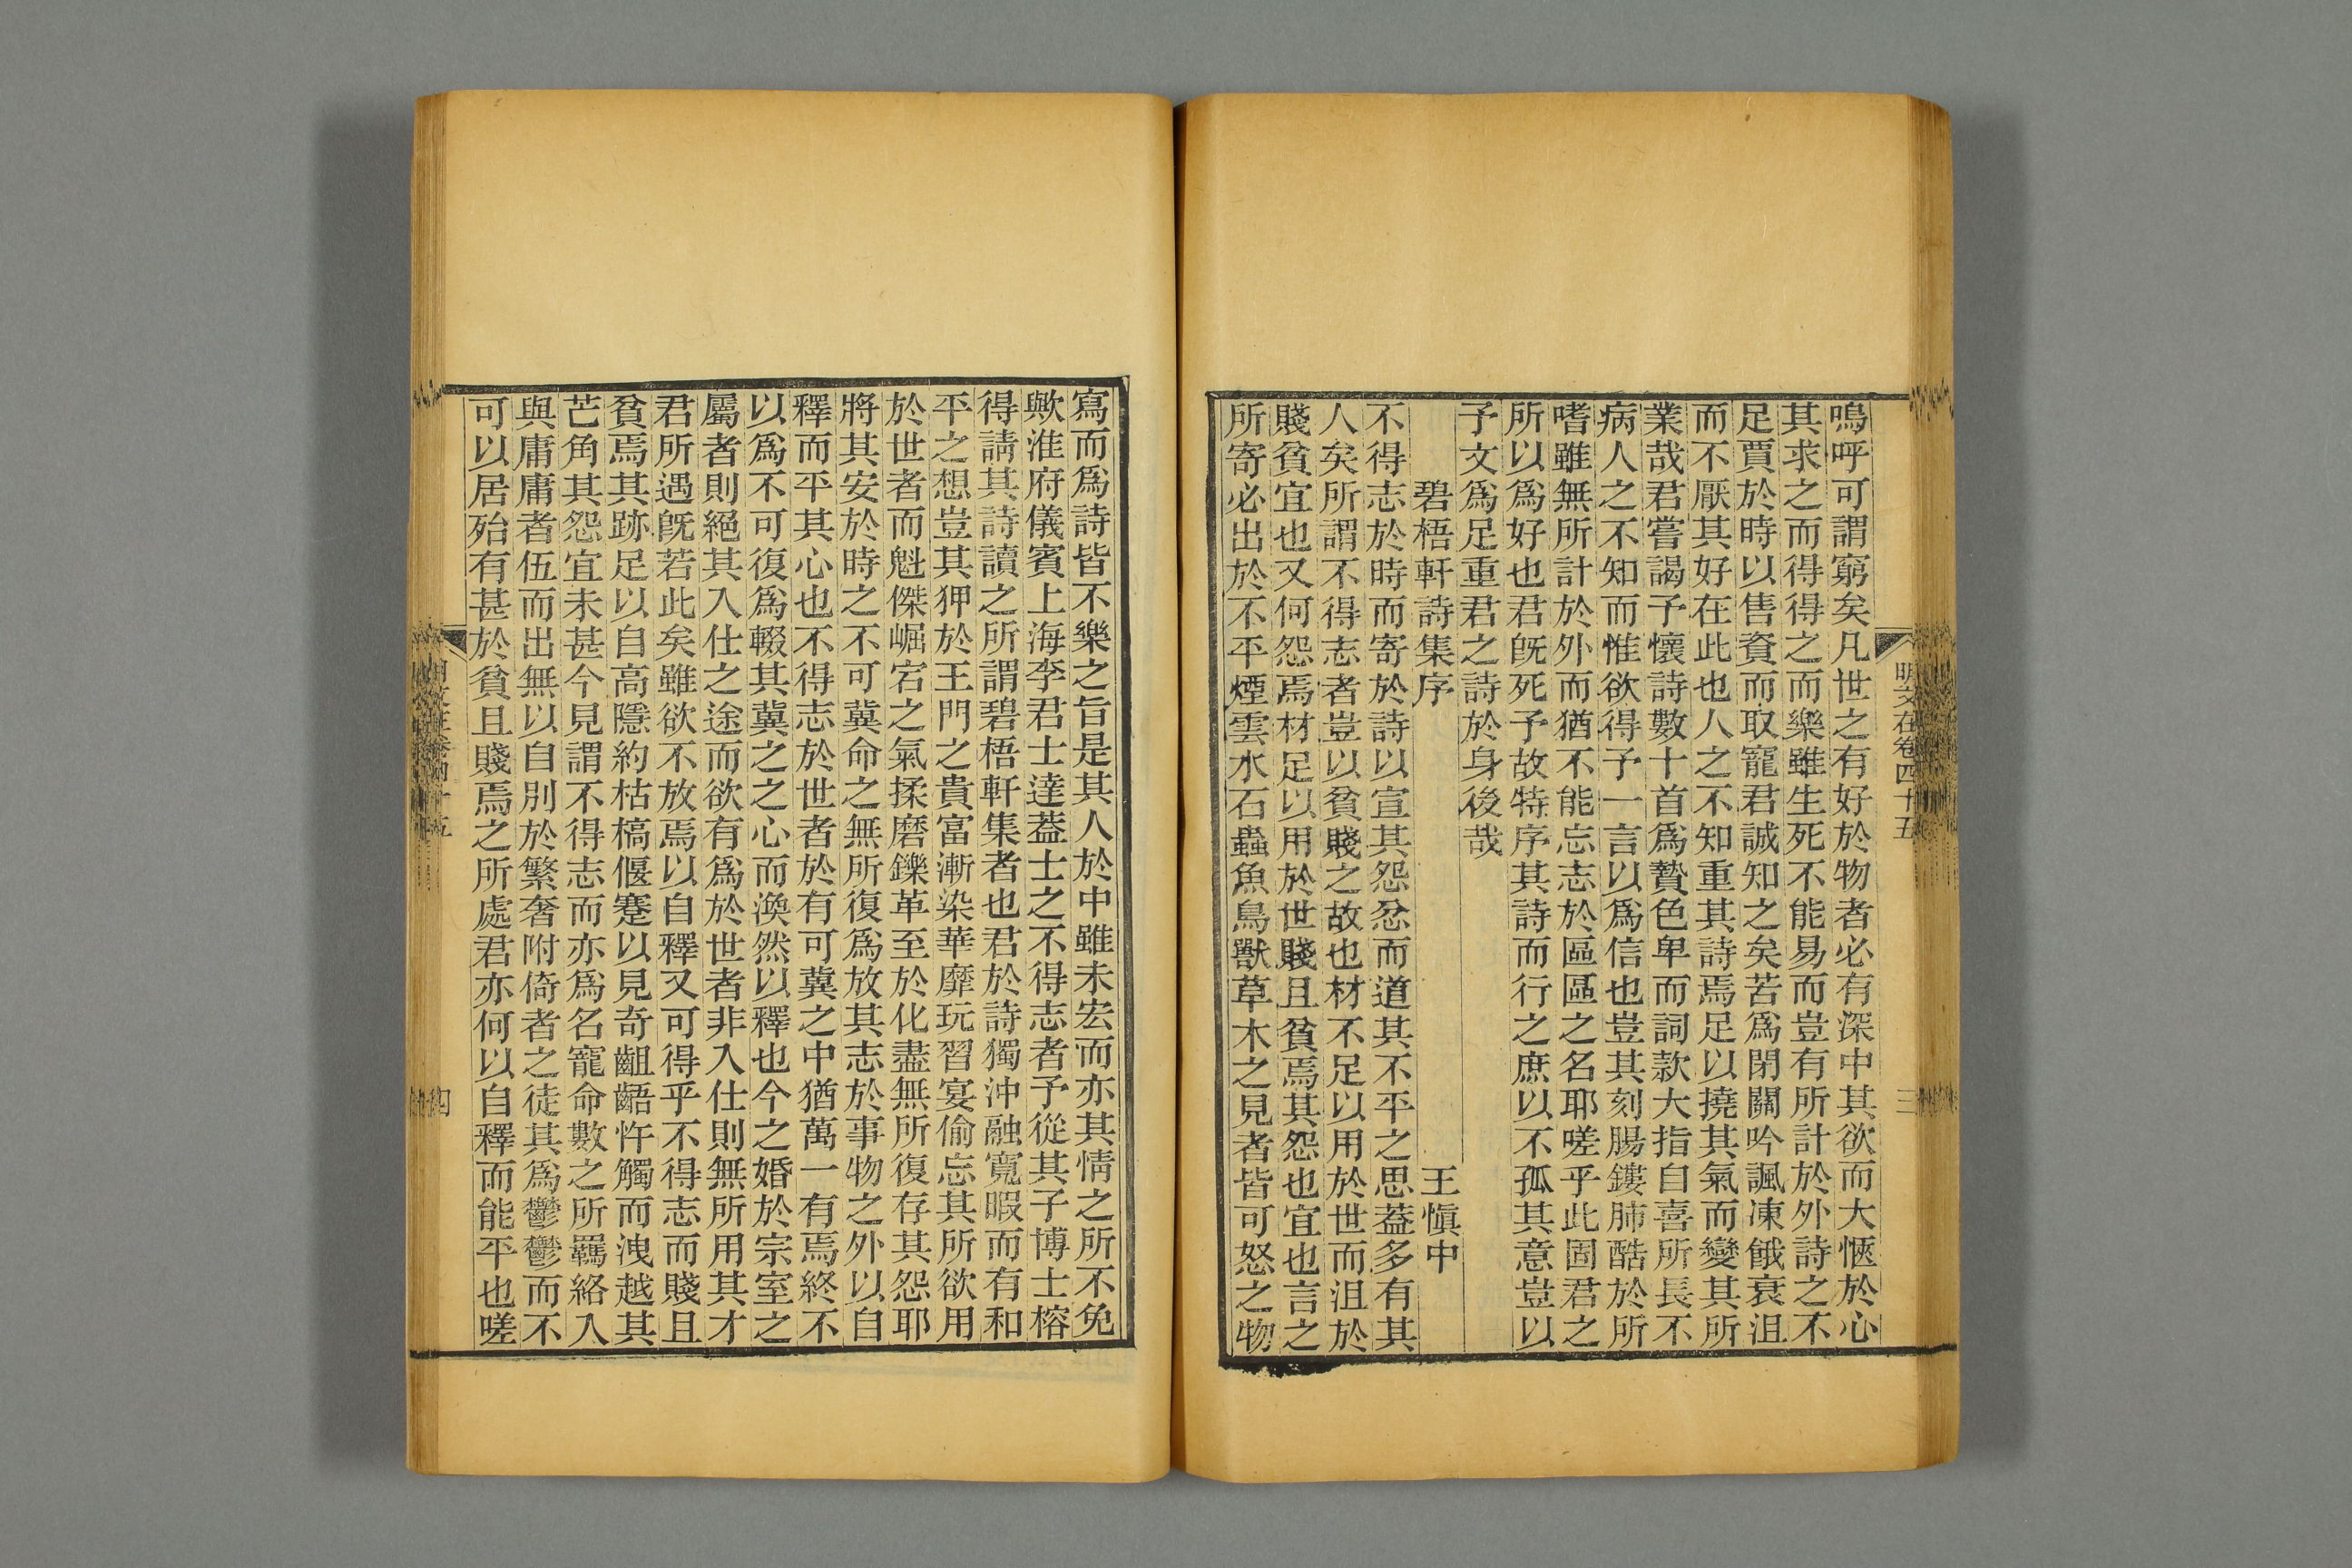 明文在卷四十五
三
嗚呼可謂窮矣凡世之有好於物者必有深中其欲而大愜於心
其求之而得得之而樂雖生死不能易而豈有所計於外詩之不
足賈於時以售資而取寵君誠知之矣苦爲閉關吟諷凍餓衰沮
而不厭其好在此也人之不知重其詩焉足以撓其氣而變其所
業哉君嘗謁予懷詩數十首爲贄色卑而詞款大指自喜所長不
病人之不知而惟欲得予一言以爲信也豈其刻腸鏤肺酷於所
嗜雖無所計於外而猶不能忘志於區區之名耶嗟乎此固君之
所以爲好也君旣死予故特序其詩而行之庶以不孤其意豈以
予文爲足重君之詩於身後哉
碧梧軒詩集序 王愼中
不得志於時而寄於詩以宣其怨忿而道其不平之思葢多有其
人矣所謂不得志者豈以貧賤之故也材不足以用於世而沮於
賤貧宜也又何怨焉材足以用於世賤且貧焉其怨也宜也言之
所寄必出於不平煙雲水石蟲魚鳥獸草木之見者皆可怒之物
寫而爲詩皆不樂之旨是其人於中雖未宏而亦其情之所不免
歟淮府儀賓上海李君士達葢士之不得志者予從其子博士榕
得請其詩讀之所謂碧梧軒集者也君於詩獨沖融寬暇而有和
平之想豈其狎於王門之貴富漸染華靡玩習宴偷忘其所欲用
於世者而魁傑崛宕之氣揉磨鑠革至於化盡無所復存其怨耶
將其安於時之不可冀命之無所復爲放其志於事物之外以自
釋而平其心也不得志於世者於有可冀之中猶萬一有焉終不
以爲不可復爲輟其冀之之心而渙然以釋也今之婚於宗室之
屬者則絕其入仕之途而欲有爲於世者非入仕則無所用其才
君所遇旣若此矣雖欲不放焉以自釋又可得乎不得志而賤且
貧焉其跡足以自高隱約枯槁偃蹇以見奇齟齬忤觸而洩越其
芒角其怨宜未甚今見謂不得志而亦爲名寵命數之所羈絡入
與庸庸者伍而出無以自別於繁奢附倚者之徒其爲鬱鬱而不
可以居殆有甚於貧且賤焉之所處君亦何以自釋而能平也嗟
四